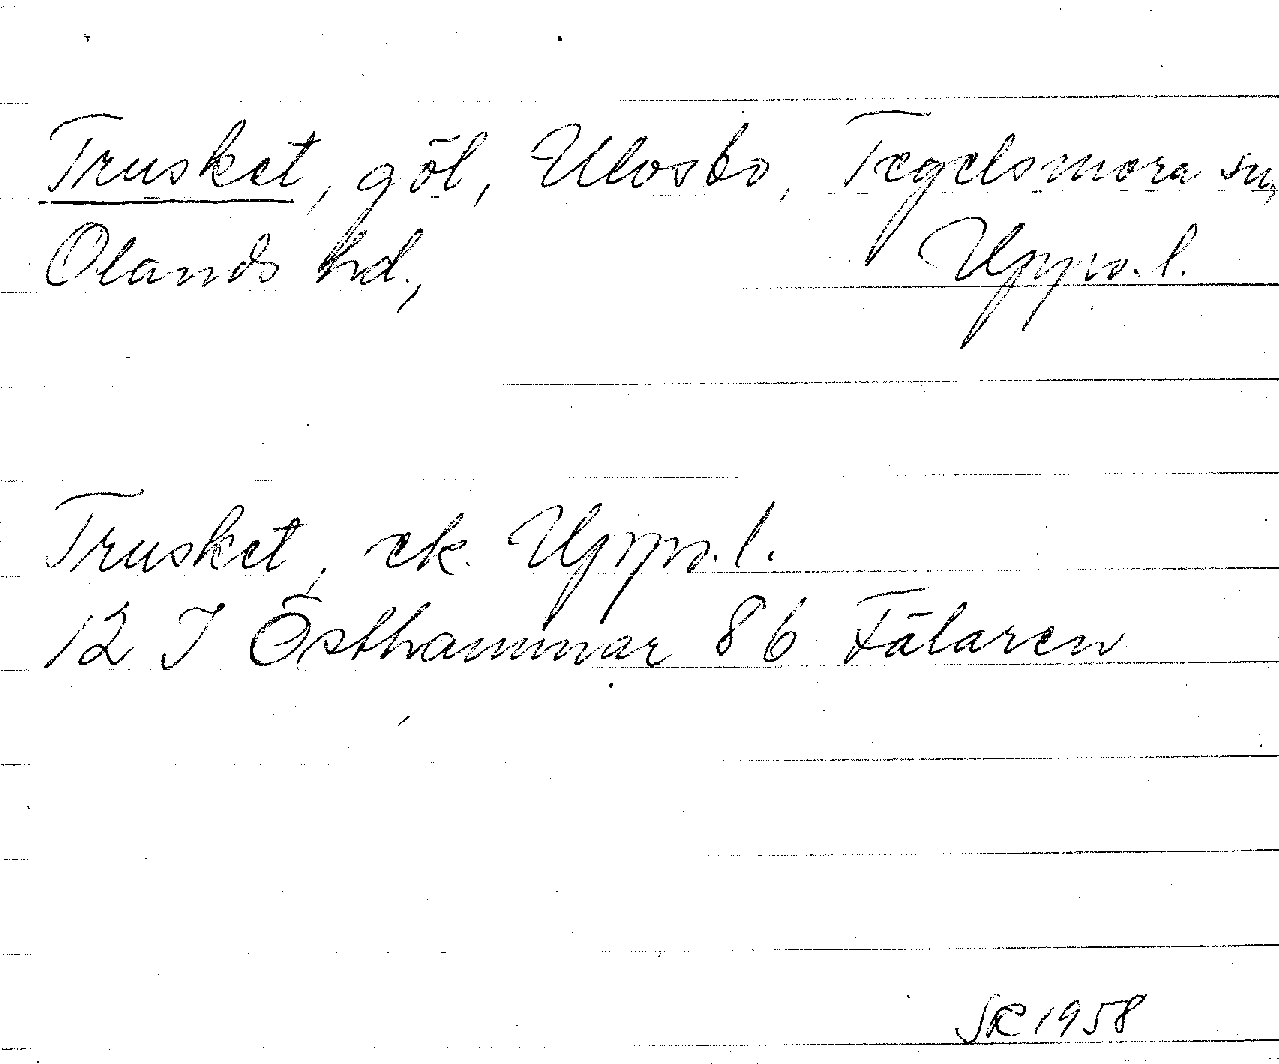 Trusket, göl, Ulvsbo, Tegelsmora sn,
Olands hd., Upps.l.
Trusket, ek. Upps.l.
12 I Östhammar 8b Fälaren
SR 1958